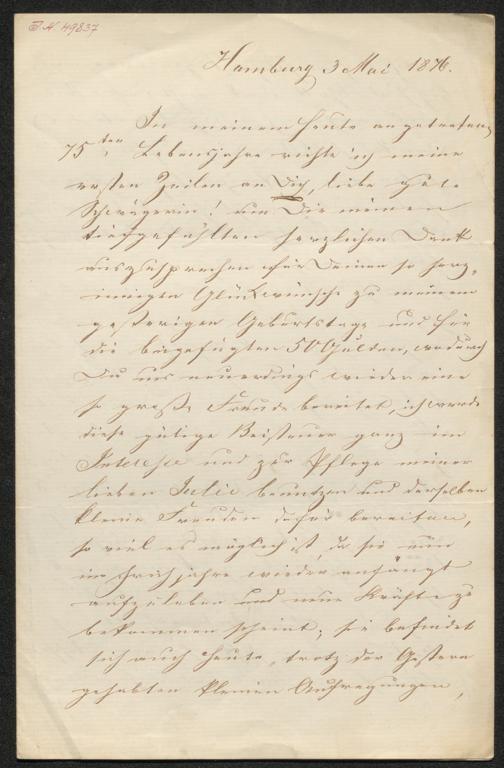 J.N. 49837
Hamburg 3 Mai 1876.
In meinem heute angetretenen
75ten Lebensjahre richte ich meine
ersten Zeilen an Dich, liebe gute
Schwägerin! um Dir meinen
tiefgefühlten herzlichen Dank
auszusprechen für Deinen so herz,
innigen Glückwünsche zu meinem
gestrigen Geburtstage und für
die beigefügten 50 Gulden, wodurch
Du uns neuerdings wieder eine
so große Freude bereitet, ich werde
diese gütige Beisteuer ganz im
Interesse und zur Pflege meiner
lieben Julie benutzen und derselben
kleine Freuden dafür bereiten,
so viel es möglich ist, da sie nun
im Frühjahre wieder anfängt
aufzuleben und neue Kräfte zu
bekommen scheint; sie befindet
sich auch heute, trotz der Gestern
gehabten kleinen Aufregungen,